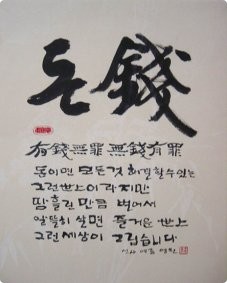 돈 錢
有錢無罪 無錢有罪
돈이면 모든것 해결할수있는
그런世上이라지만
땀흘린만큼 벌어서
알뜰히 살면 즐거운 世上
그런세상이 그립습니다